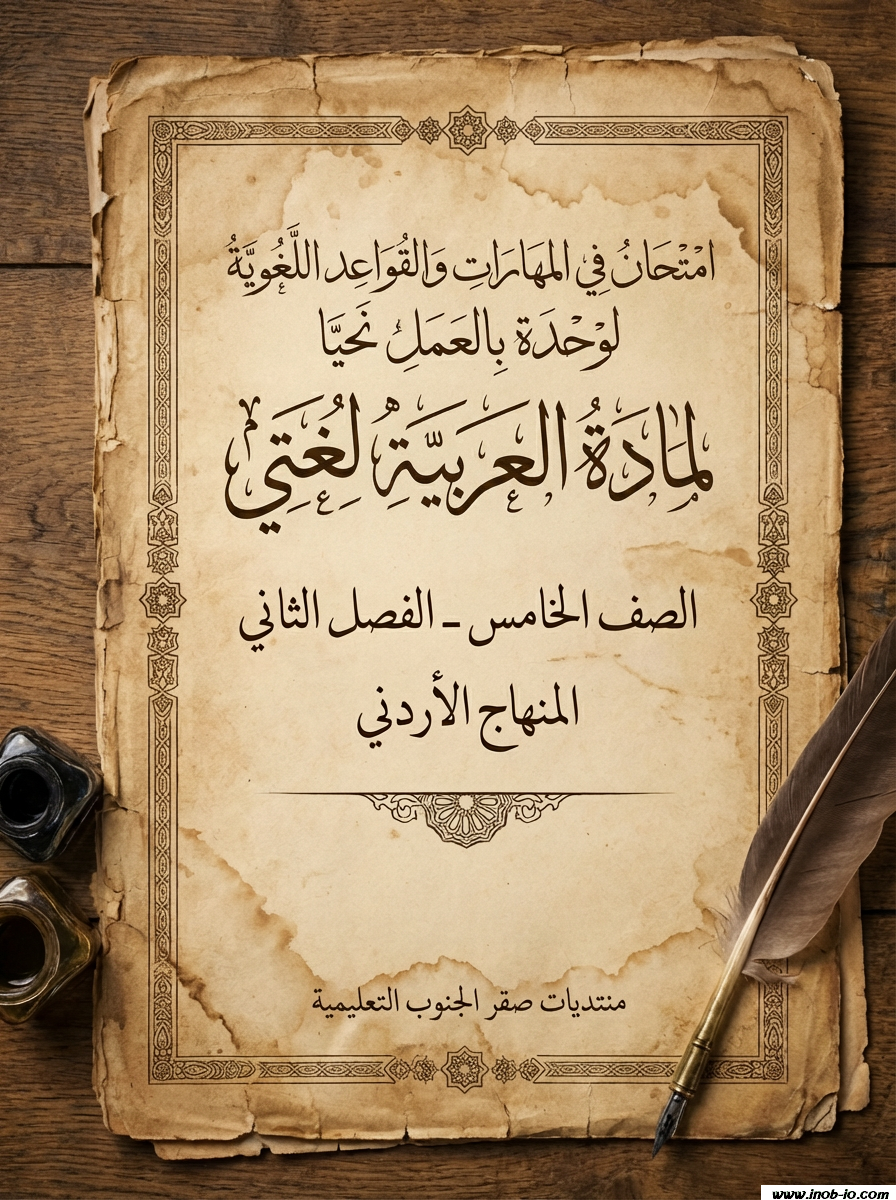 امْتْحَانُ فِي المَهَارَاتِ وَالقُوَاعِد اللَّغُويَّةُ
لوْحْدَة بِالعَمَلِ نَحيَّا
لمَادَةُ العَرَبيَّةِ لُغَتِي
الصف الخامس - الفصل الثاني
المنهاج الأردني
منتديات صقر الجنوب التعليمية
www.jnob-jo.com